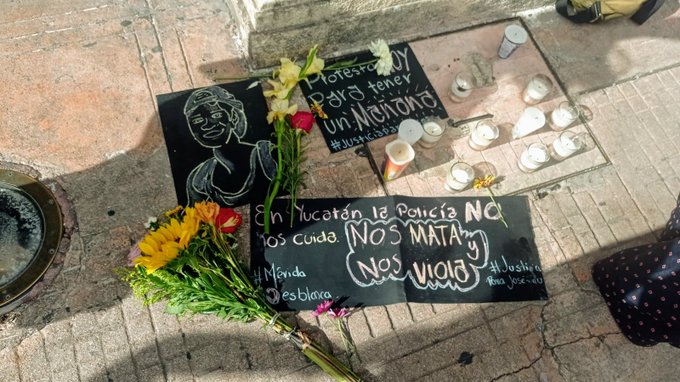 Protesto HOY
para tener
un MAñANA
#Justicia
En Yucatán la Policía NO
nos cuida. NOS MATA y
NOS VIOLA
#Mérida
Desblanca
#Justicia
Para José